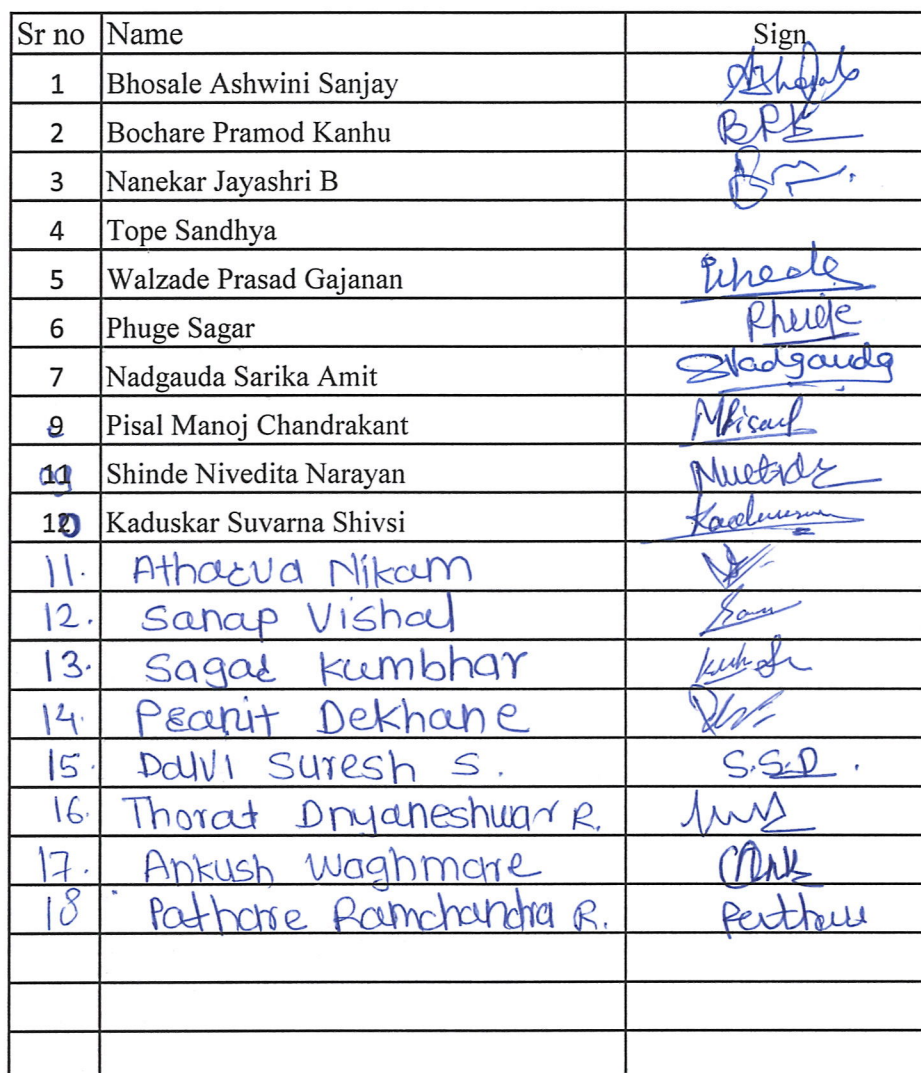 Sr no Name Sign
1 Bhosale Ashwini Sanjay
2 Bochare Pramod Kanhu BPK
3 Nanekar Jayashri B
4 Tope Sandhya
5 Walzade Prasad Gajanan
6 Phuge Sagar Phuge
7 Nadgauda Sarika Amit SNadgauda
9 Pisal Manoj Chandrakant MPisal
11 Shinde Nivedita Narayan
12 Kaduskar Suvarna Shivsi
11. Atharva Nikam
12. Sanap Vishal
13. Sagar Kumbhar
14. Pranit Dekhane
15. Dalvi Suresh S. S.S.D.
16. Thorat Dnyaneshwar R.
17. Ankush Waghmare
18 Pathare Ramchandra R.